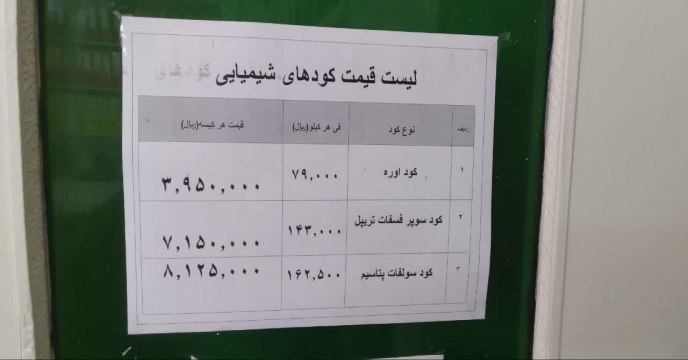 لیست قیمت کودهای شیمیایی
ردیف نوع کود فی هر کیلو(ریال) قیمت هر کیسه(ریال)
۱ کود اوره ۷۹,۰۰۰ ۳,۹۵۰,۰۰۰
۲ کود سوپر فسفات تریپل ۱۴۳,۰۰۰ ۷,۱۵۰,۰۰۰
۳ کود سولفات پتاسیم ۱۶۲,۵۰۰ ۸,۱۲۵,۰۰۰